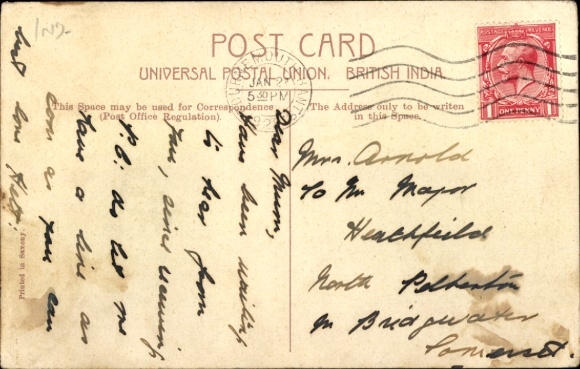 IND-
POST CARD
UNIVERSAL POSTAL UNION. BRITISH INDIA.
JAN 27
5 30 PM
POSTAGE REVENUE
ONE PENNY
This Space may be used for Correspondence
(Post Office Regulation).
The Address only to be writen
in this Space.
Dear Mum,
Have been waiting
to hear from
you, since receiving
P.C. do let me
have a line as
soon as you can
best love
Mrs. Arnold
To Mr Mapor
Heathfield
North Petherton
Nr Bridgwater
Somerset.
Printed in Saxony.